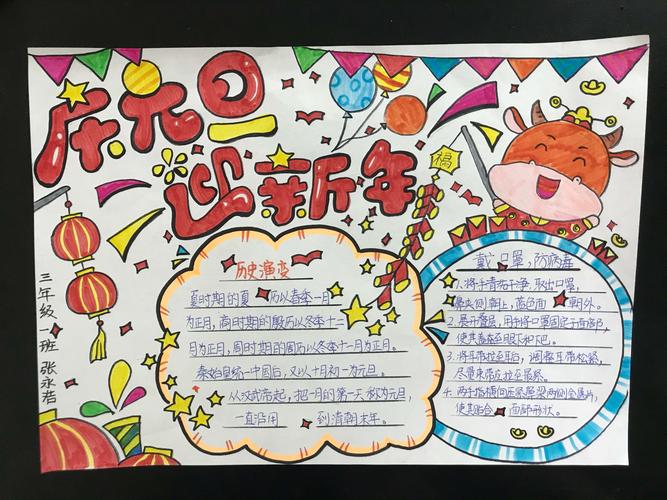 庆元旦
迎新年
福
三年级一班 张永浩
历史演变
夏时期的夏 历以春季一月
为正月，商时期的殷历以冬季十二
月为正月，周时期的周历以冬季十一月为正月。
秦始皇统一中国后，又以十月初一为元旦。
从汉武帝起，把一月的第一天称为元旦，
一直沿用 到清朝末年。
戴口罩，防病毒
1、将手清洁干净，取出口罩，
鼻夹侧朝上，蓝色面 朝外。
2、展开叠层，用手将口罩固定于面部，
使其盖至眼下和下巴。
3、将耳带拉至耳后，调整耳带松紧，
尽量束带应拉至最紧。
4、两手指横向压紧鼻梁两侧金属片，
使其贴合 面部形状。